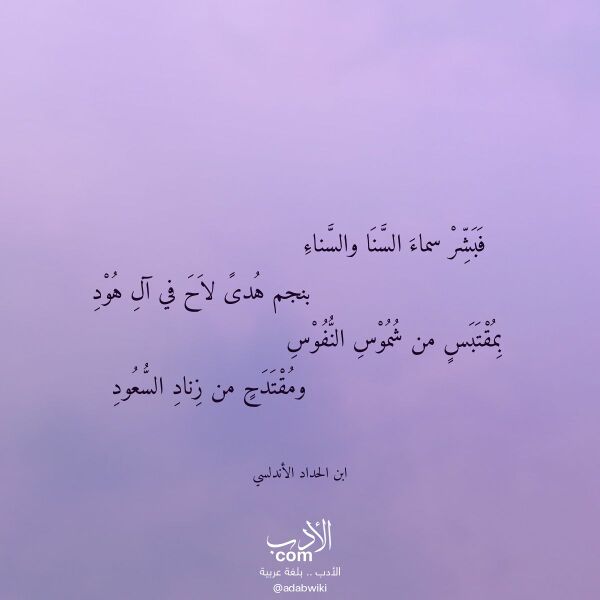 فَبَشِّرْ سماءَ السَّنَا والسَّناءِ
بنجم هُدىً لاَحَ في آلِ هُوْدِ
بِمُقْتَبَسٍ من شُمُوْسِ النُّفُوْسِ
ومُقْتَدَحٍ من زِنادِ السُّعُودِ
ابن الحداد الأندلسي
الأدب
com
الأدب .. بلغة عربية
@adabwiki